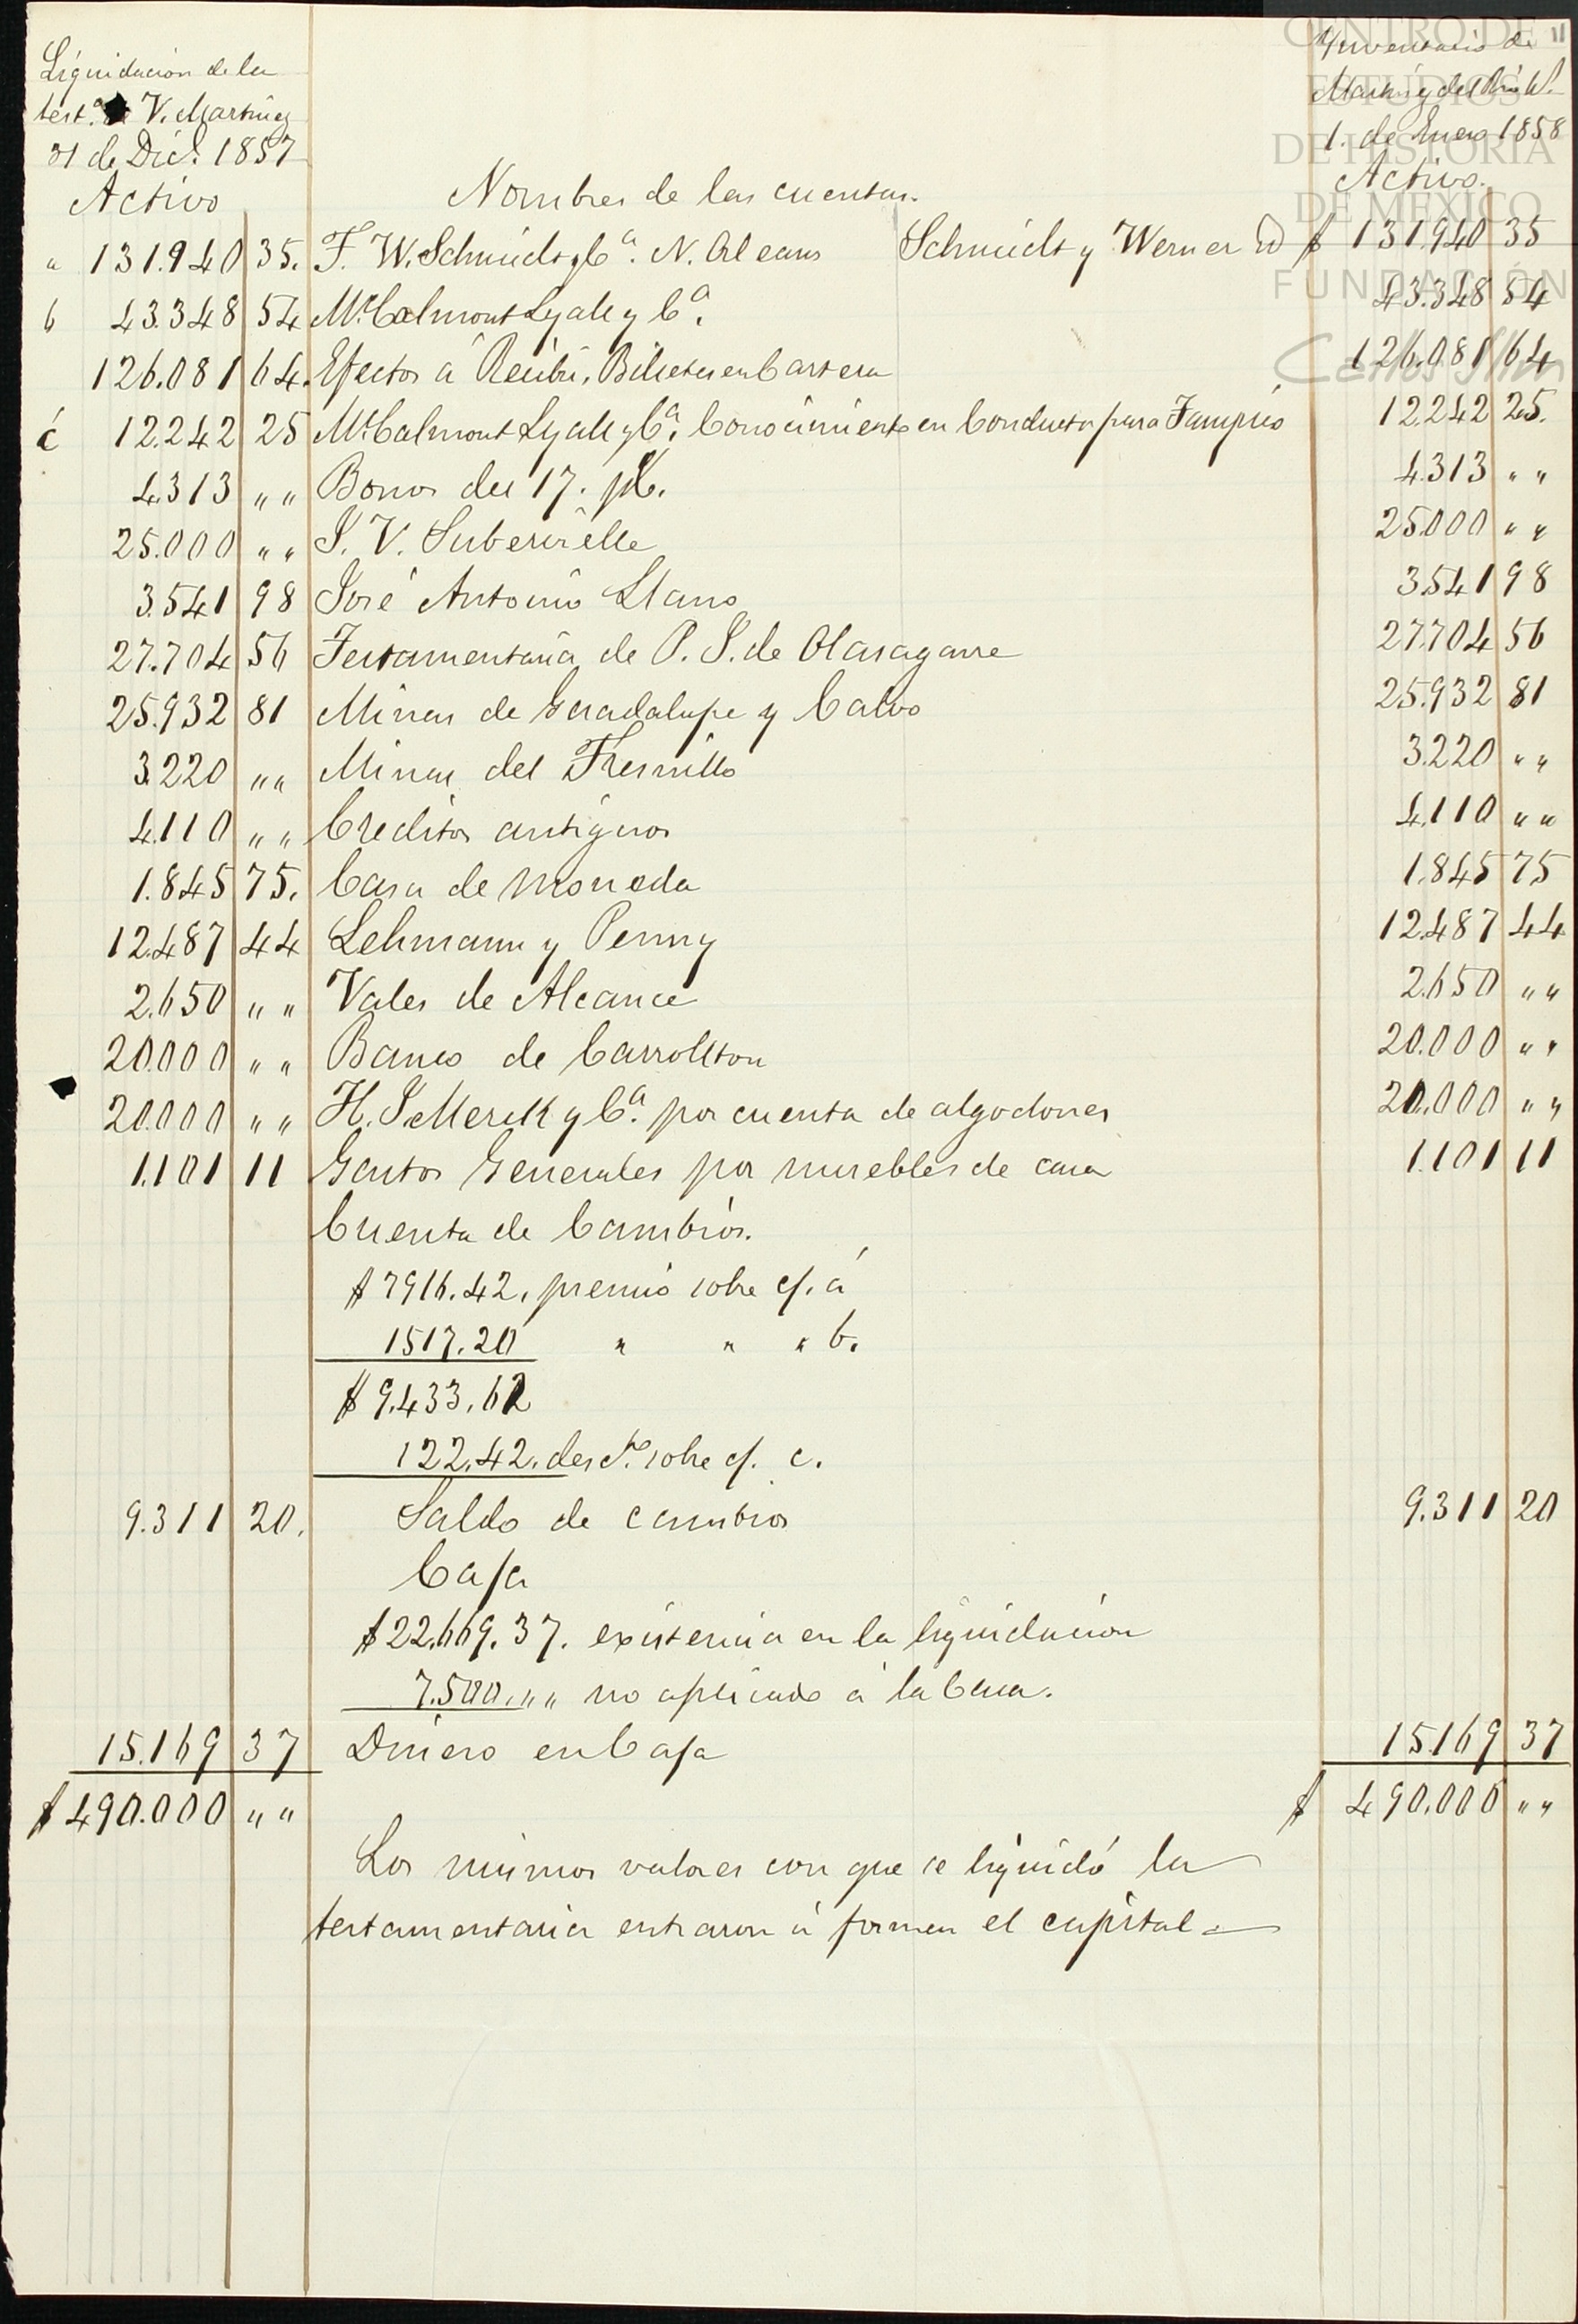 Liquidacion de la
test.ª de V. Martinez
31 de Dic.e 1857
Activo
Inventario de
Martinez del Rio
1. de Enero 1858
Activo.
CENTRO DE
ESTUDIOS
DE HISTORIA
DE MEXICO
FUNDACIÓN
Carlos Slim
Nombres de las cuentas.
a 131.940 35. F. W. Schmidt y Cª. N. Orleans Schmidt y Werner $ 131.940 35
b 43.348 54 McCalmont Lyall y Cª. 43.348 54
126.081 64. Efectos á Recibir, Billetes en Cartera 126.081 64
c 12.242 25 McCalmont Lyall y Cª. Conocimiento en Conducta para Tampico 12.242 25.
4.313 " " Bonos del 17. p%. 4.313 " "
25.000 " " S. V. Subervielle 25.000 " "
3.541 98 José Antonio Llano 3.541 98
27.704 56 Testamentaria de P. S. de Olasagarre 27.704 56
25.932 81 Minas de Guadalupe y Calvo 25.932 81
3.220 " " Minas del Fresnillo 3.220 " "
4.110 " " Creditos antiguos 4.110 " "
1.845 75. Casa de Moneda 1.845 75
12.487 44 Lehmann y Penny 12.487 44
2.650 " " Vales de Alcance 2.650 " "
20.000 " " Banco de Carrollton 20.000 " "
20.000 " " H. S. Merck y Cª. por cuenta de algodones 20.000 " "
1.101 11 Gastos Generales por muebles de casa 1.101 11
Cuenta de Cambios.
$ 7916.42. premio sobre cf. a
1517.20 " " " b.
$ 9.433.62
122.42. desc.to sobre cf. c.
9.311 20. Saldo de cambios 9.311 20
Caja
$ 22.669.37. existencia en la liquidacion
7.500. " " no aplicado á la Casa.
15.169 37 Dinero en Caja 15.169 37
$ 490.000 " " $ 490.000 " "
Los mismos valores con que se liquidó la
testamentaria entraron á formar el capital.